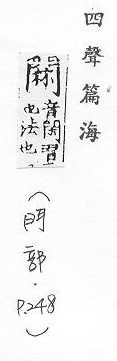 四聲篇海
音閑習
也法也
（門部．P.248）